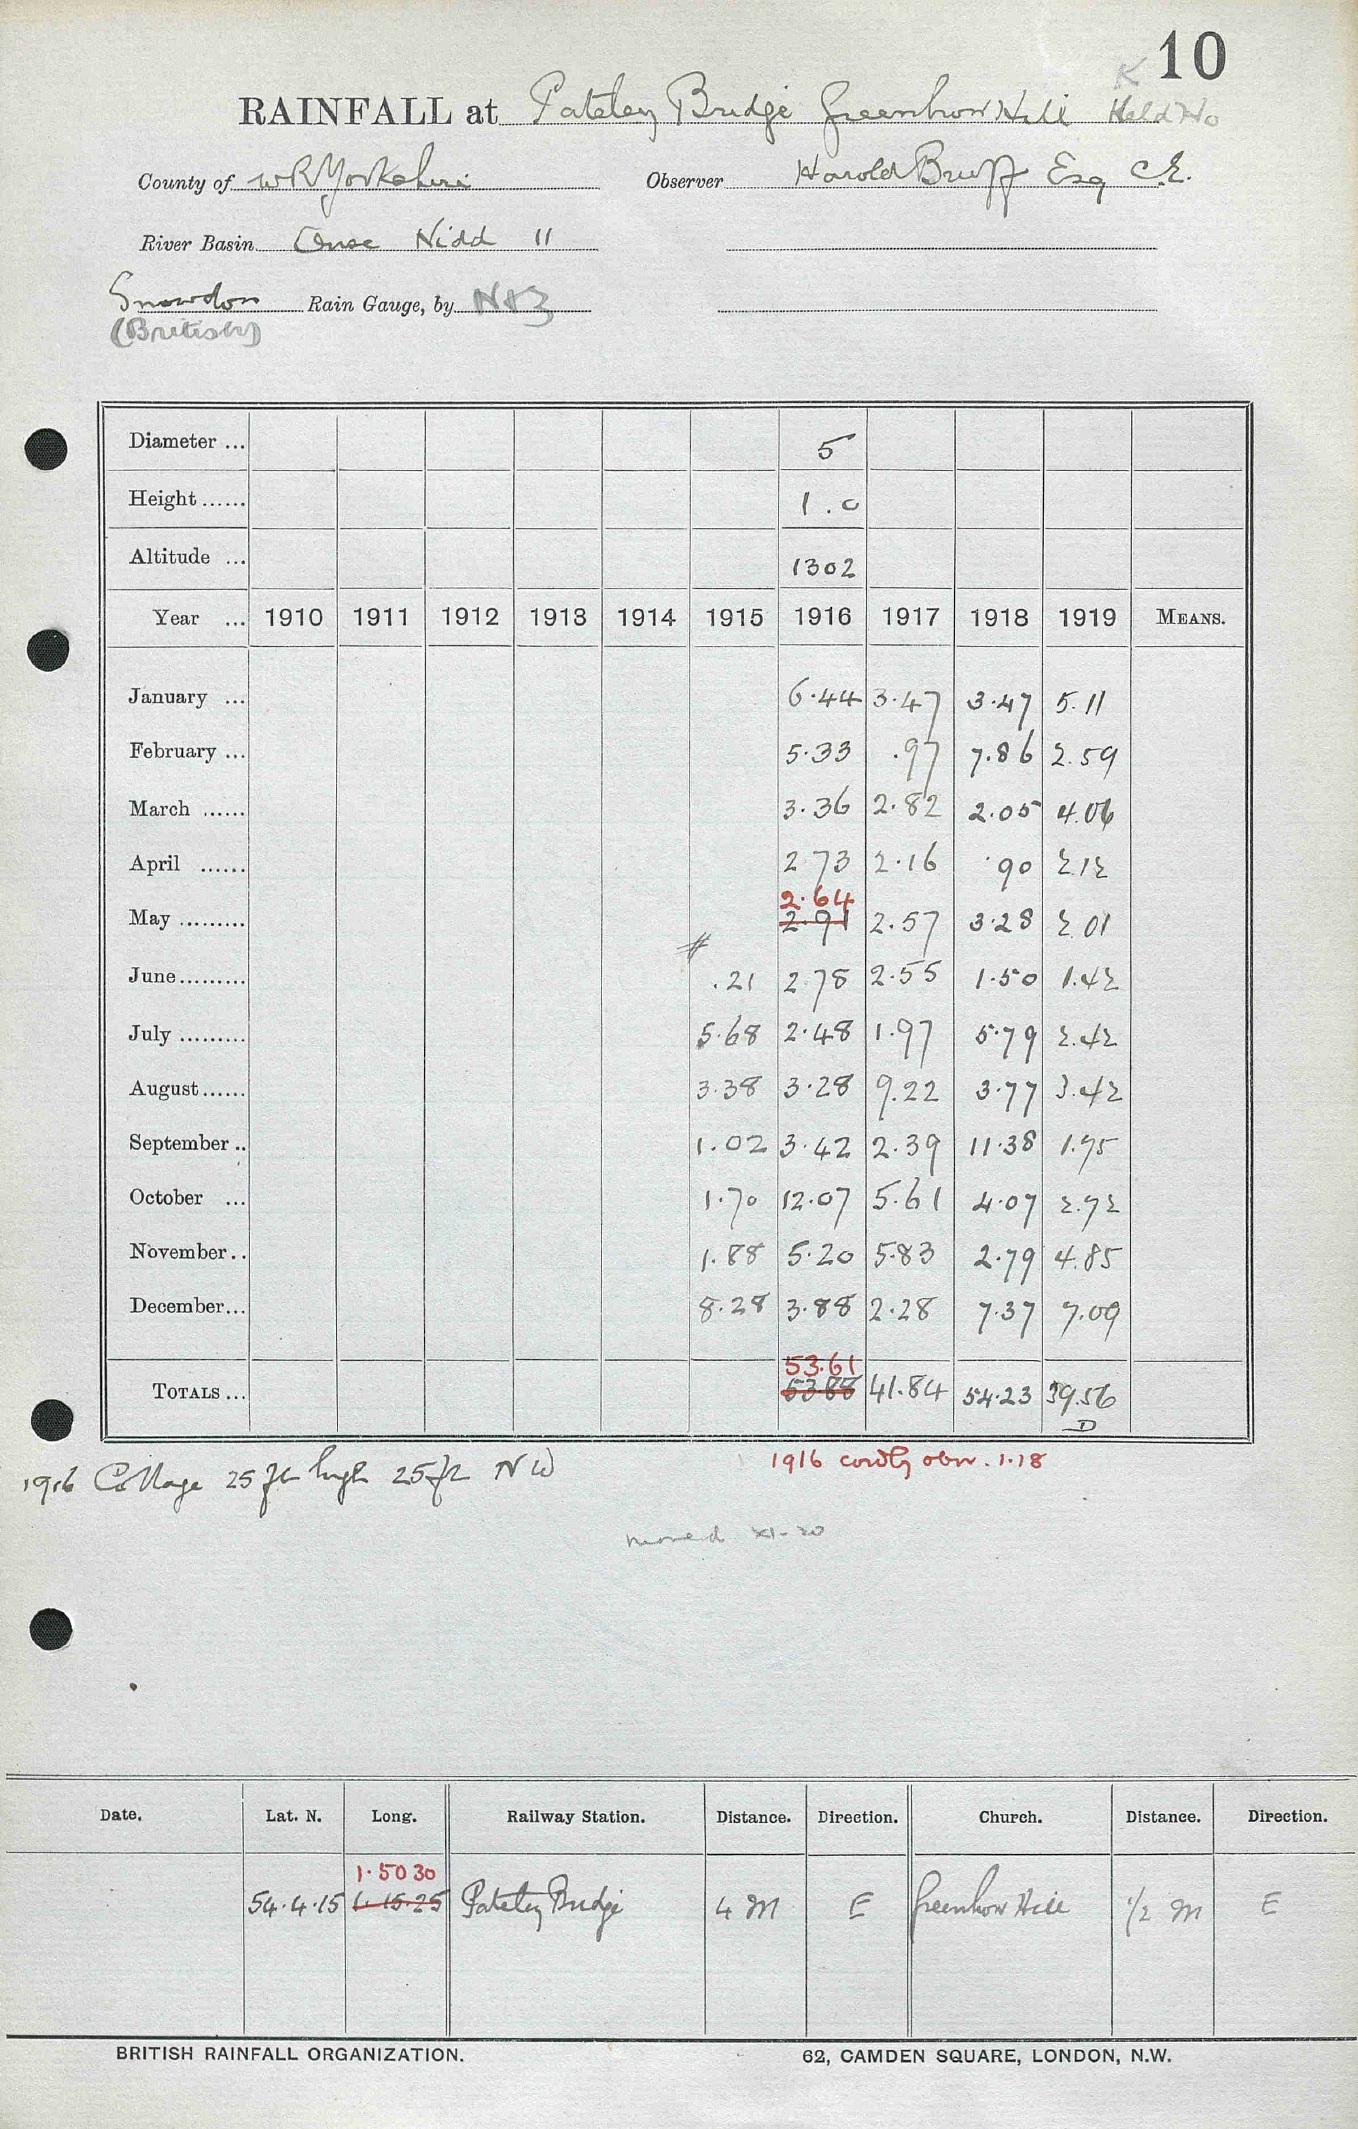 10
K
RAINFALL at Pateley Bridge Greenhow Hill Held No
County of W R Yorkshire Observer Harold Bruff Esq C.E.
River Basin Ouse Nidd 11
Snowdon Rain Gauge, by N&Z
(British)
Diameter ... 5
Height ...... 1.0
Altitude ... 1302
Year ... 1910 1911 1912 1913 1914 1915 1916 1917 1918 1919 MEANS.
January ... 6.44 3.47 3.47 5.11
February ... 5.33 .97 7.86 2.59
March ...... 3.36 2.82 2.05 4.06
April ...... 2 73 2.16 .90 2.12
2.64
May ......... 2.91 2.57 3.28 2.01
#
June ......... .21 2.78 2.55 1.50 1.42
July ......... 5.68 2.48 1.97 5.79 2.42
August ...... 3.38 3.28 9.22 3.77 3.42
September .. 1.02 3.42 2.39 11.38 1.75
October ... 1.70 12.07 5.61 4.07 2.72
November .. 1.88 5.20 5.83 2.79 4.85
December... 8.28 3.88 2.28 7.37 7.09
53.61
TOTALS ... 53.88 41.84 54.23 39.56
D
1916 Cottage 25 ft high 25 ft N W
1916 cordly obsr. 1.18
moved XI-20
Date. Lat. N. Long. Railway Station. Distance. Direction. Church. Distance. Direction.
1.50 30
54.4.15 1.15.25 Pateley Bridge 4 M E Greenhow Hill 1/2 M E
BRITISH RAINFALL ORGANIZATION. 62, CAMDEN SQUARE, LONDON, N.W.